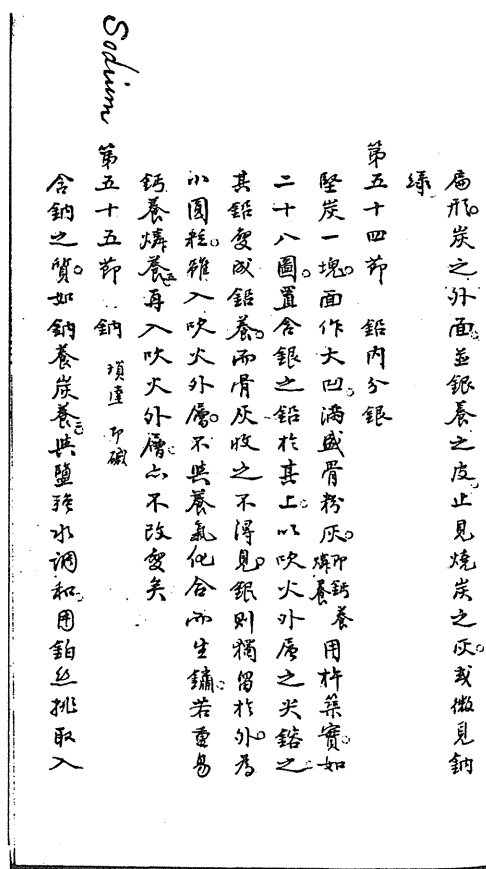 扁形炭之外面並銀養之皮止見燒炭之灰或微見鈉
綠
第五十四節 鉛內分銀
堅炭一塊面作大凹滿盛骨粉灰即鈣養燐養用杵築實如
二十八圖置含銀之鉛於其上以吹火外層之尖鎔之
其鉛變成鉛養而骨灰收之不得見銀則獨留於外為
小圓粒雖入吹火外層不與養氣化合而生鏽若重易
鈣養燐養五再入吹火外層亦不改變矣
Sodium
第五十五節 鈉 瑣達即碱
含鈉之質如鈉養炭養二與鹽強水調和用鉑絲挑取入